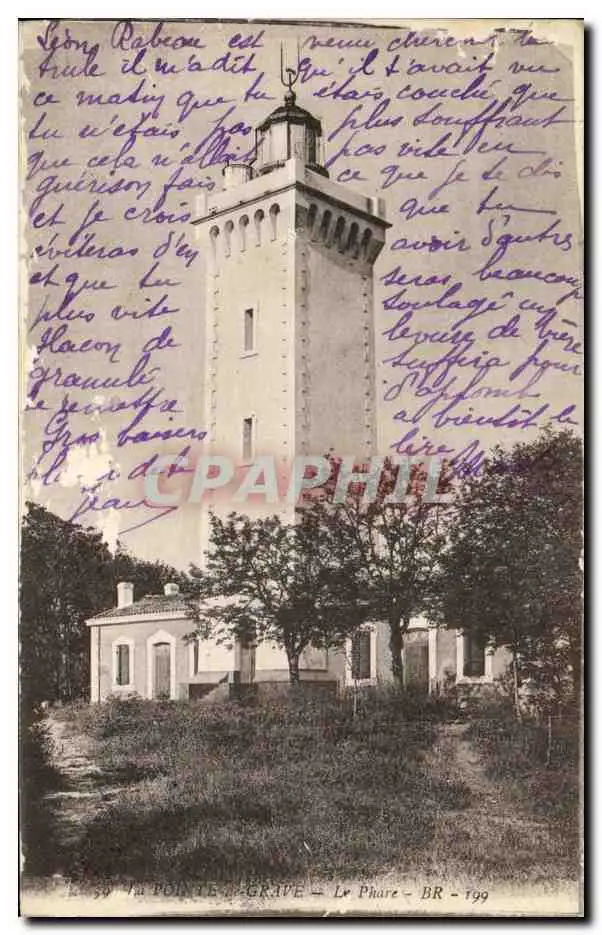 Léon Rabeau est venu cherché ta
trule il m'a dit qu'il t'avait vu
ce matin que tu étais couché que
tu n'étais pas plus souffrant
que cela n'allait pas vite en
guérison fais ce que je te dis
et je crois que tu
éviteras d'en avoir d'autres
et que tu seras beaucoup
plus vite soulagé un
flacon de levure de bière
granulé suffira pour
te remettre d'aplomb
Gros baisers a bientôt le
plus lire
jean
CPAPHIL
59 La POINTE de GRAVE - Le Phare - BR - 199